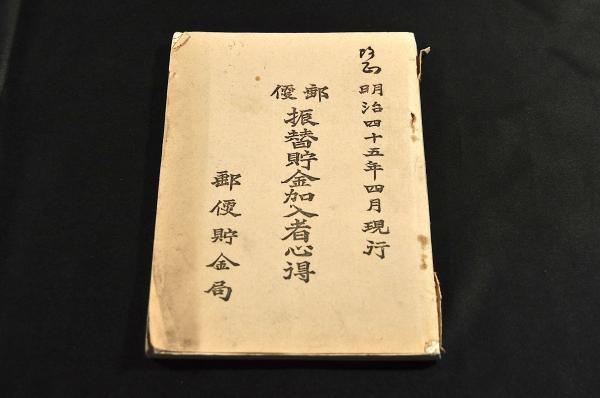 明治四十五年四月現行
郵便
振替貯金加入者心得
郵便貯金局